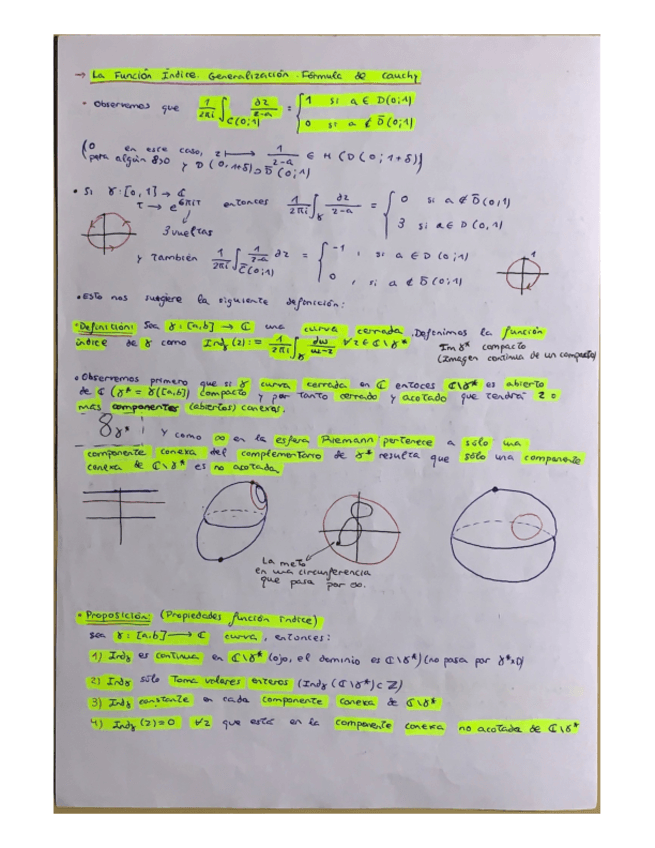 → La Función Índice. Generalización. Fórmula de Cauchy
• Observemos que 1/2πi ∫_C(0;1) dz/z-a = { 1 si a ∈ D(0;1)
0 si a ∉ D̄(0;1)
(O en este caso, z ↦ 1/z-a ∈ H(D(0;1+δ))
para algún δ>0 y D(0,1+δ) ⊃ D̄(0;1)
• Si γ: [0,1] → ℂ
t → e^6πit entonces 1/2πi ∫_γ dz/z-a = { 0 si a ∉ D̄(0,1)
3 si a ∈ D(0,1)
3 vueltas
y también 1/2πi ∫_C̄(0;1) 1/z-a dz = { -1, si a ∈ D(0;1)
0, si a ∉ D̄(0;1)
1
• Esto nos sugiere la siguiente definición:
• Definición: Sea γ: [a,b] → ℂ una curva cerrada. Definimos la función
índice de γ como Indγ(z) := 1/2πi ∫_γ dw/w-z ∀z ∈ ℂ\γ*
Im γ* compacto
(Imagen continua de un compacto)
• Observemos primero que si γ curva cerrada en ℂ entoces ℂ\γ* es abierto
de ℂ (γ* = γ([a,b]) compacto y por tanto cerrado y acotado que tendrá 2 o
más componentes (abiertos) conexas.
8γ* y como ∞ en la esfera Riemann pertenece a sólo una
componente conexa del complementario de γ* resulta que sólo una componente
conexa de ℂ\γ* es no acotada.
La meto
en una circunferencia
que pasa por ∞.
• Proposición: (Propiedades función índice)
sea γ: [a,b] → ℂ curva, entonces:
1) Indγ es continua en ℂ\γ* (ojo, el dominio es ℂ\γ*) (no pasa por γ*)
2) Indγ sólo toma valores enteros (Indγ(ℂ\γ*) ⊂ ℤ)
3) Indγ constante en cada componente conexa de ℂ\γ*
4) Indγ(z)=0 ∀z que está en la componente conexa no acotada de ℂ\γ*